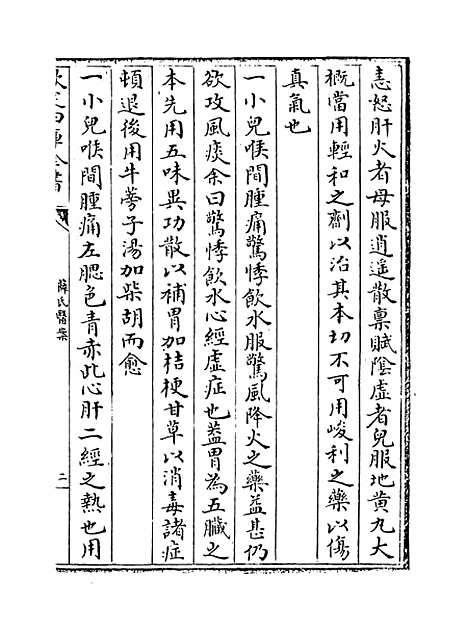 恚怒肝火者母服逍遥散禀賦陰虚者兒服地黄丸大
概當用輕和之劑以治其本切不可用峻利之藥以傷
真氣也
一小兒喉間腫痛驚悸飲水服驚風降火之藥益甚仍
欲攻風痰余曰驚悸飲水心經虚症也葢胃為五臟之
本先用五味異功散以補胃加桔梗甘草以消毒諸症
頓退後用牛蒡子湯加柴胡而愈
一小兒喉間腫痛左腮色青赤此心肝二經之熱也用
欽定四庫全書
薛氏醫案
二